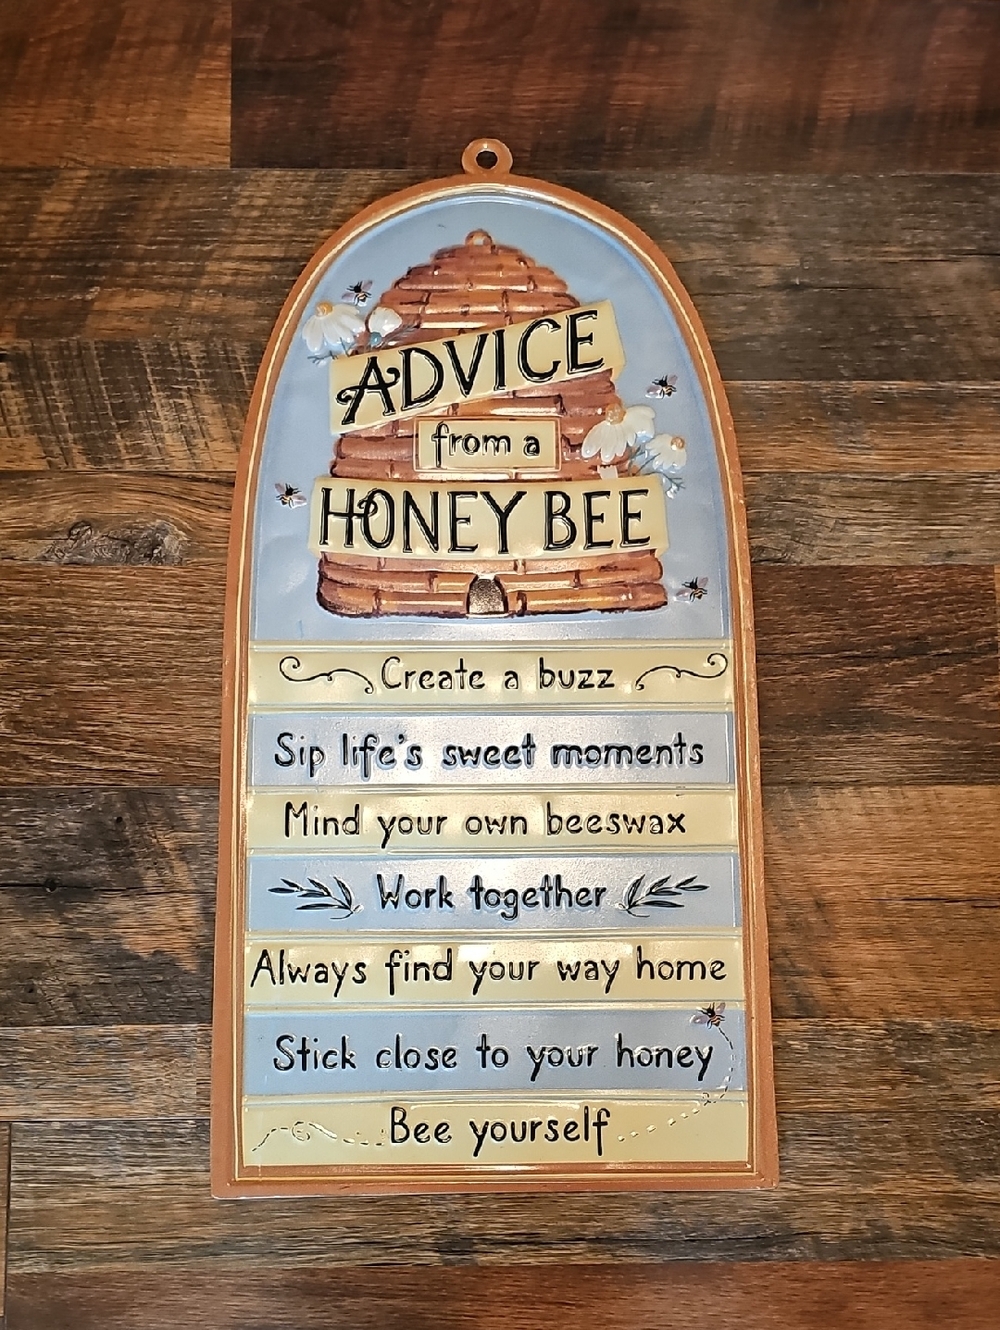 ADVICE
from a
HONEY BEE
Create a buzz
Sip life's sweet moments
Mind your own beeswax
Work together
Always find your way home
Stick close to your honey
Bee yourself